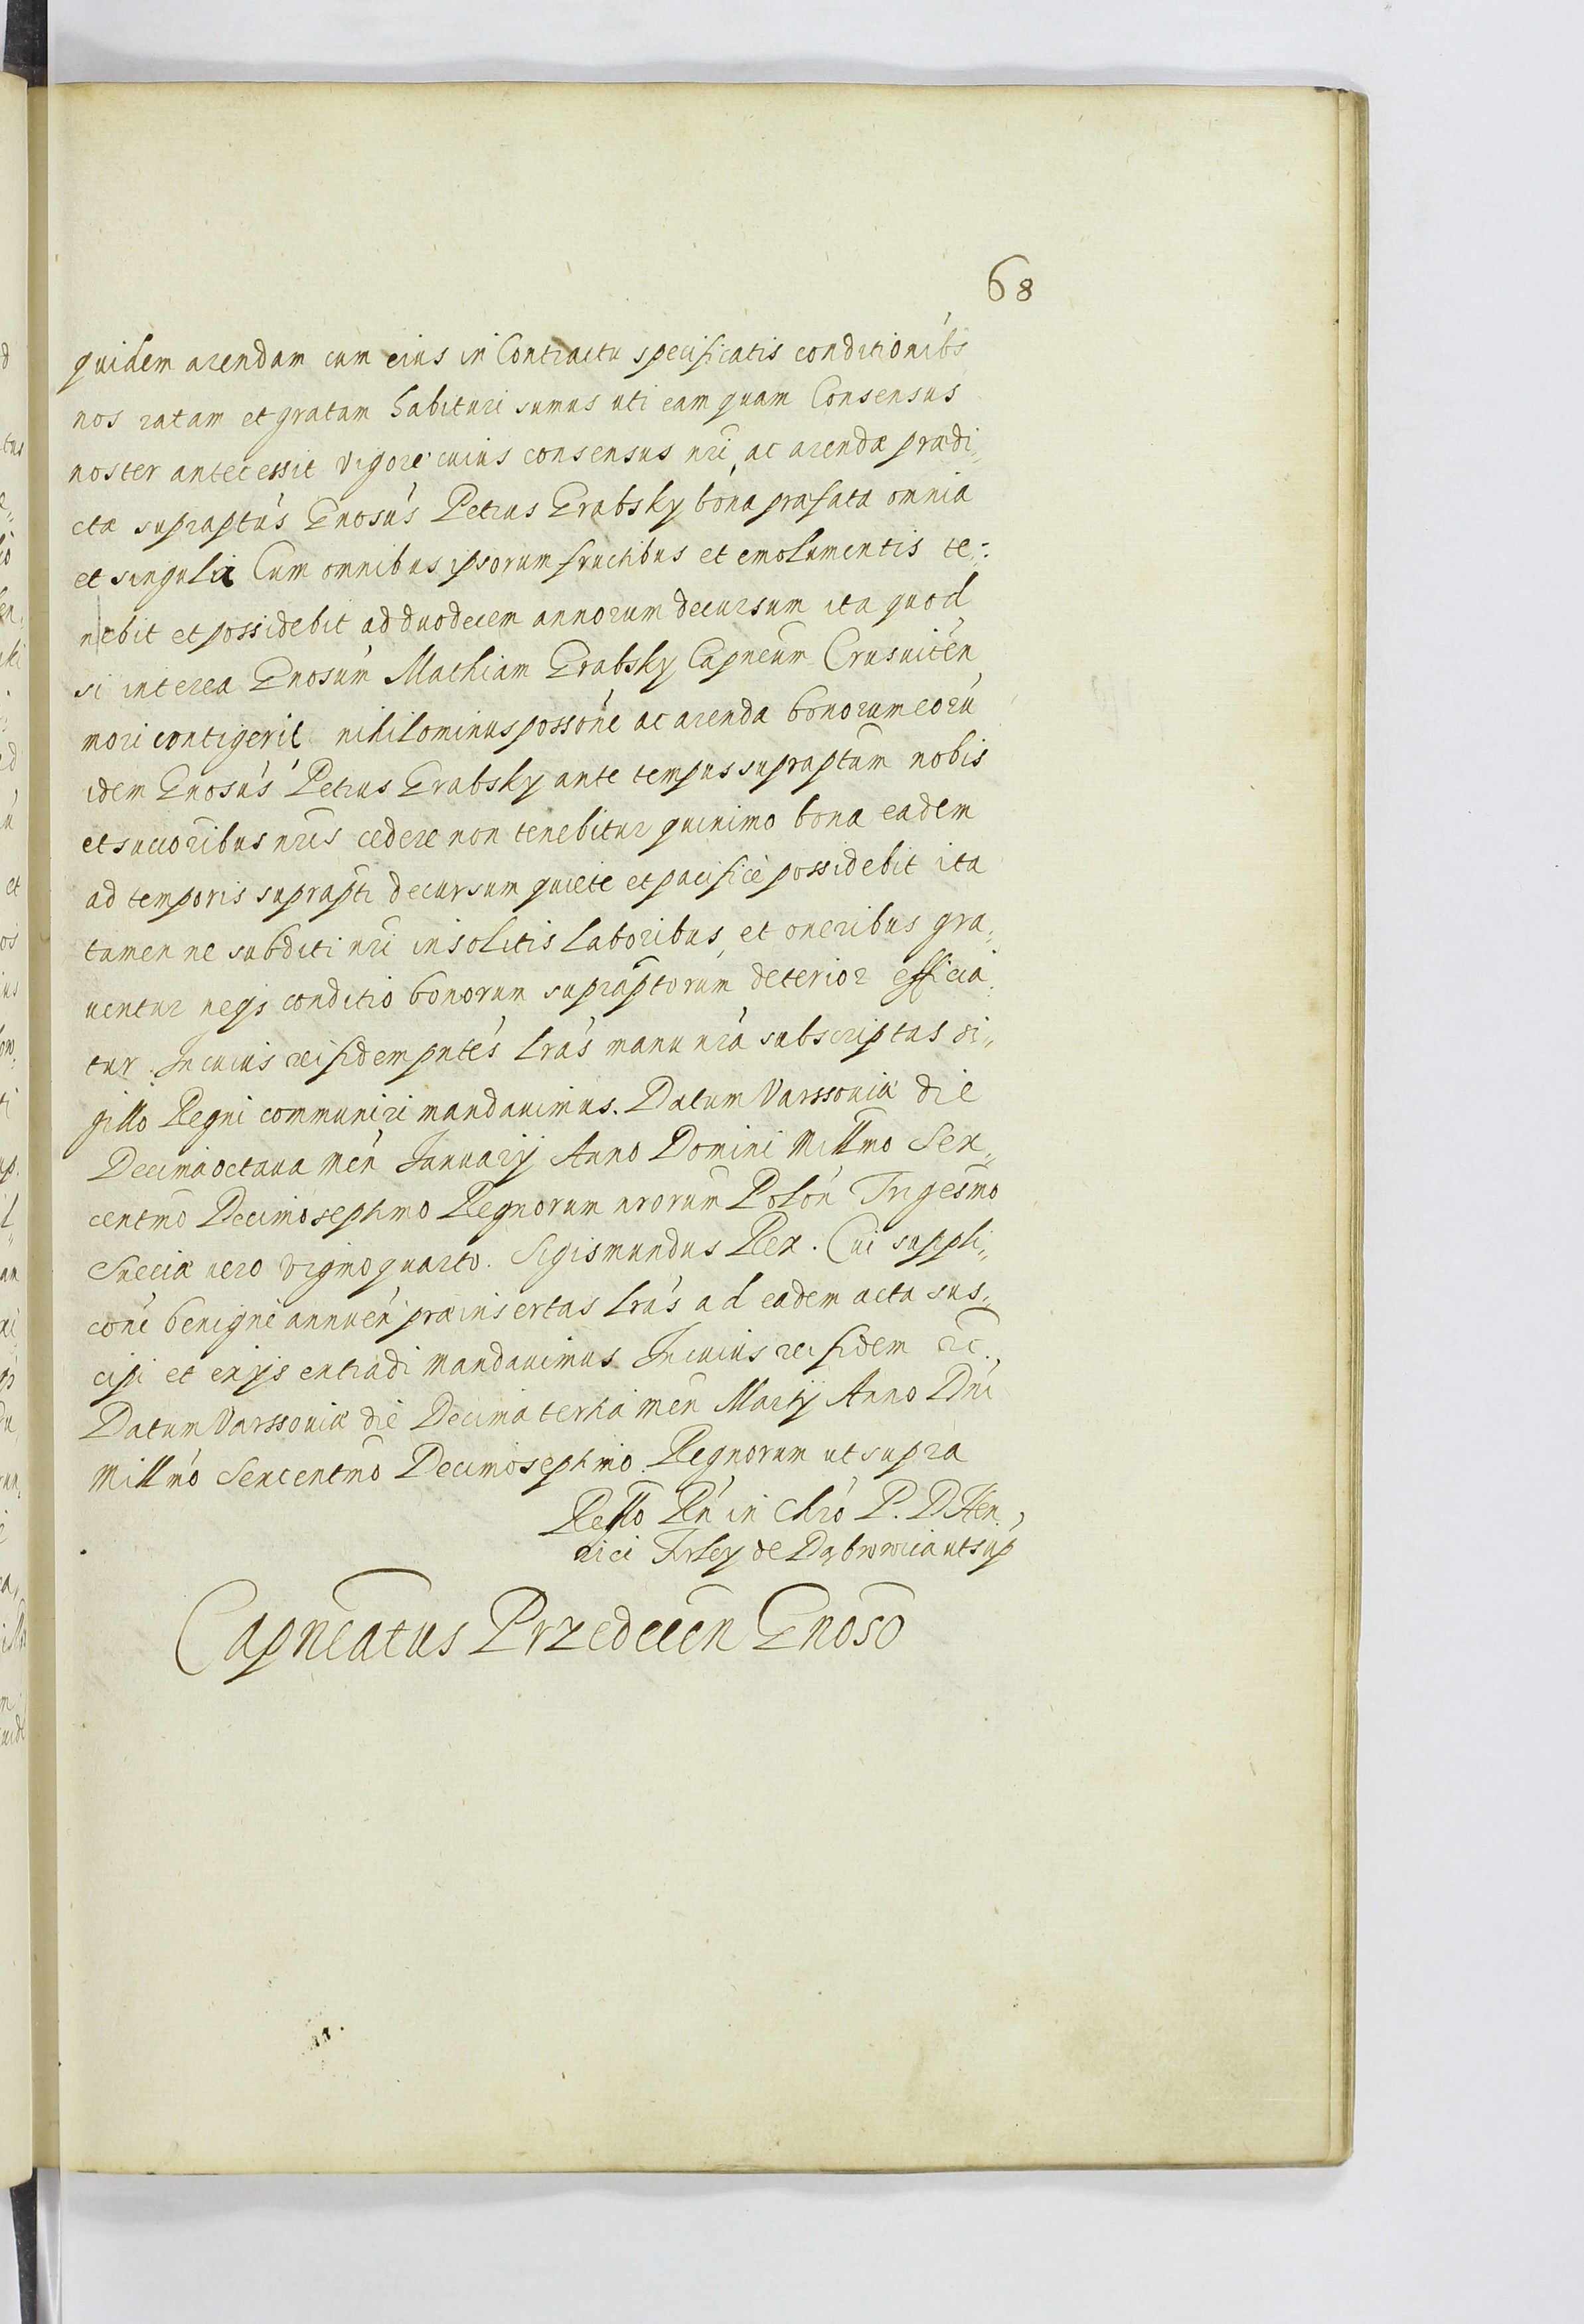 68
quidem arendam cum eius in Contractu specificatis conditionibs
nos ratam et gratam habituri sumus uti eam quam Consensus
noster antecessit vigore cuius consensus nri ac arendæ prædi„
ctæ supraptus Gnosus Petrus Grabsky bona præfata omnia
et singula Cum omnibus ipsorum fructibus et emolumentis te-:
nebit et possidebit ad duodecem annorum decursum ita quod
si interea Gnosum Mathiam Grabsky Capneum Crusuicen
mori contigerit nihilominus possone ac arenda bonorum eoru
idem Gnosus Petrus Grabsky ante tempus supraptum nobis
et succoribus nris cedere non tenebitur quinimo bona eadem
ad temporis suprapti decursum quiete et pacifice possidebit ita
tamen ne subditi nri insolitis laboribus et oneribus gra„
uentur neqs conditio bonorum supraptorum deterior efficia„
tur. In cuius rei fidem pntes lras manu nra subscriptas si„
gillo Regni communiri mandauimus. Datum Varssouiæ die
Decima octaua men January Anno Domini Millmo Sex„
centmo Decimo septimo Regnorum nrorum Polon Trigesmo
Sueciæ uero vigmo quarto. Sigismundus Rex. Cui suppli„
coni benigne annuen præinsertas lras ad eadem acta sus„
cipi et exijs extradi mandauimus In cuius rei fidem etc.
Datum Varssouiæ die Decima tertia men Martij Anno Dni
Millmo Sexcentmo Decimo septimo Regnorum ut supra
Rello Rn in Chro P. D. Hen„
rici Firley de Dąbrowica ut sup
Capneatus Przedecen Gnoso